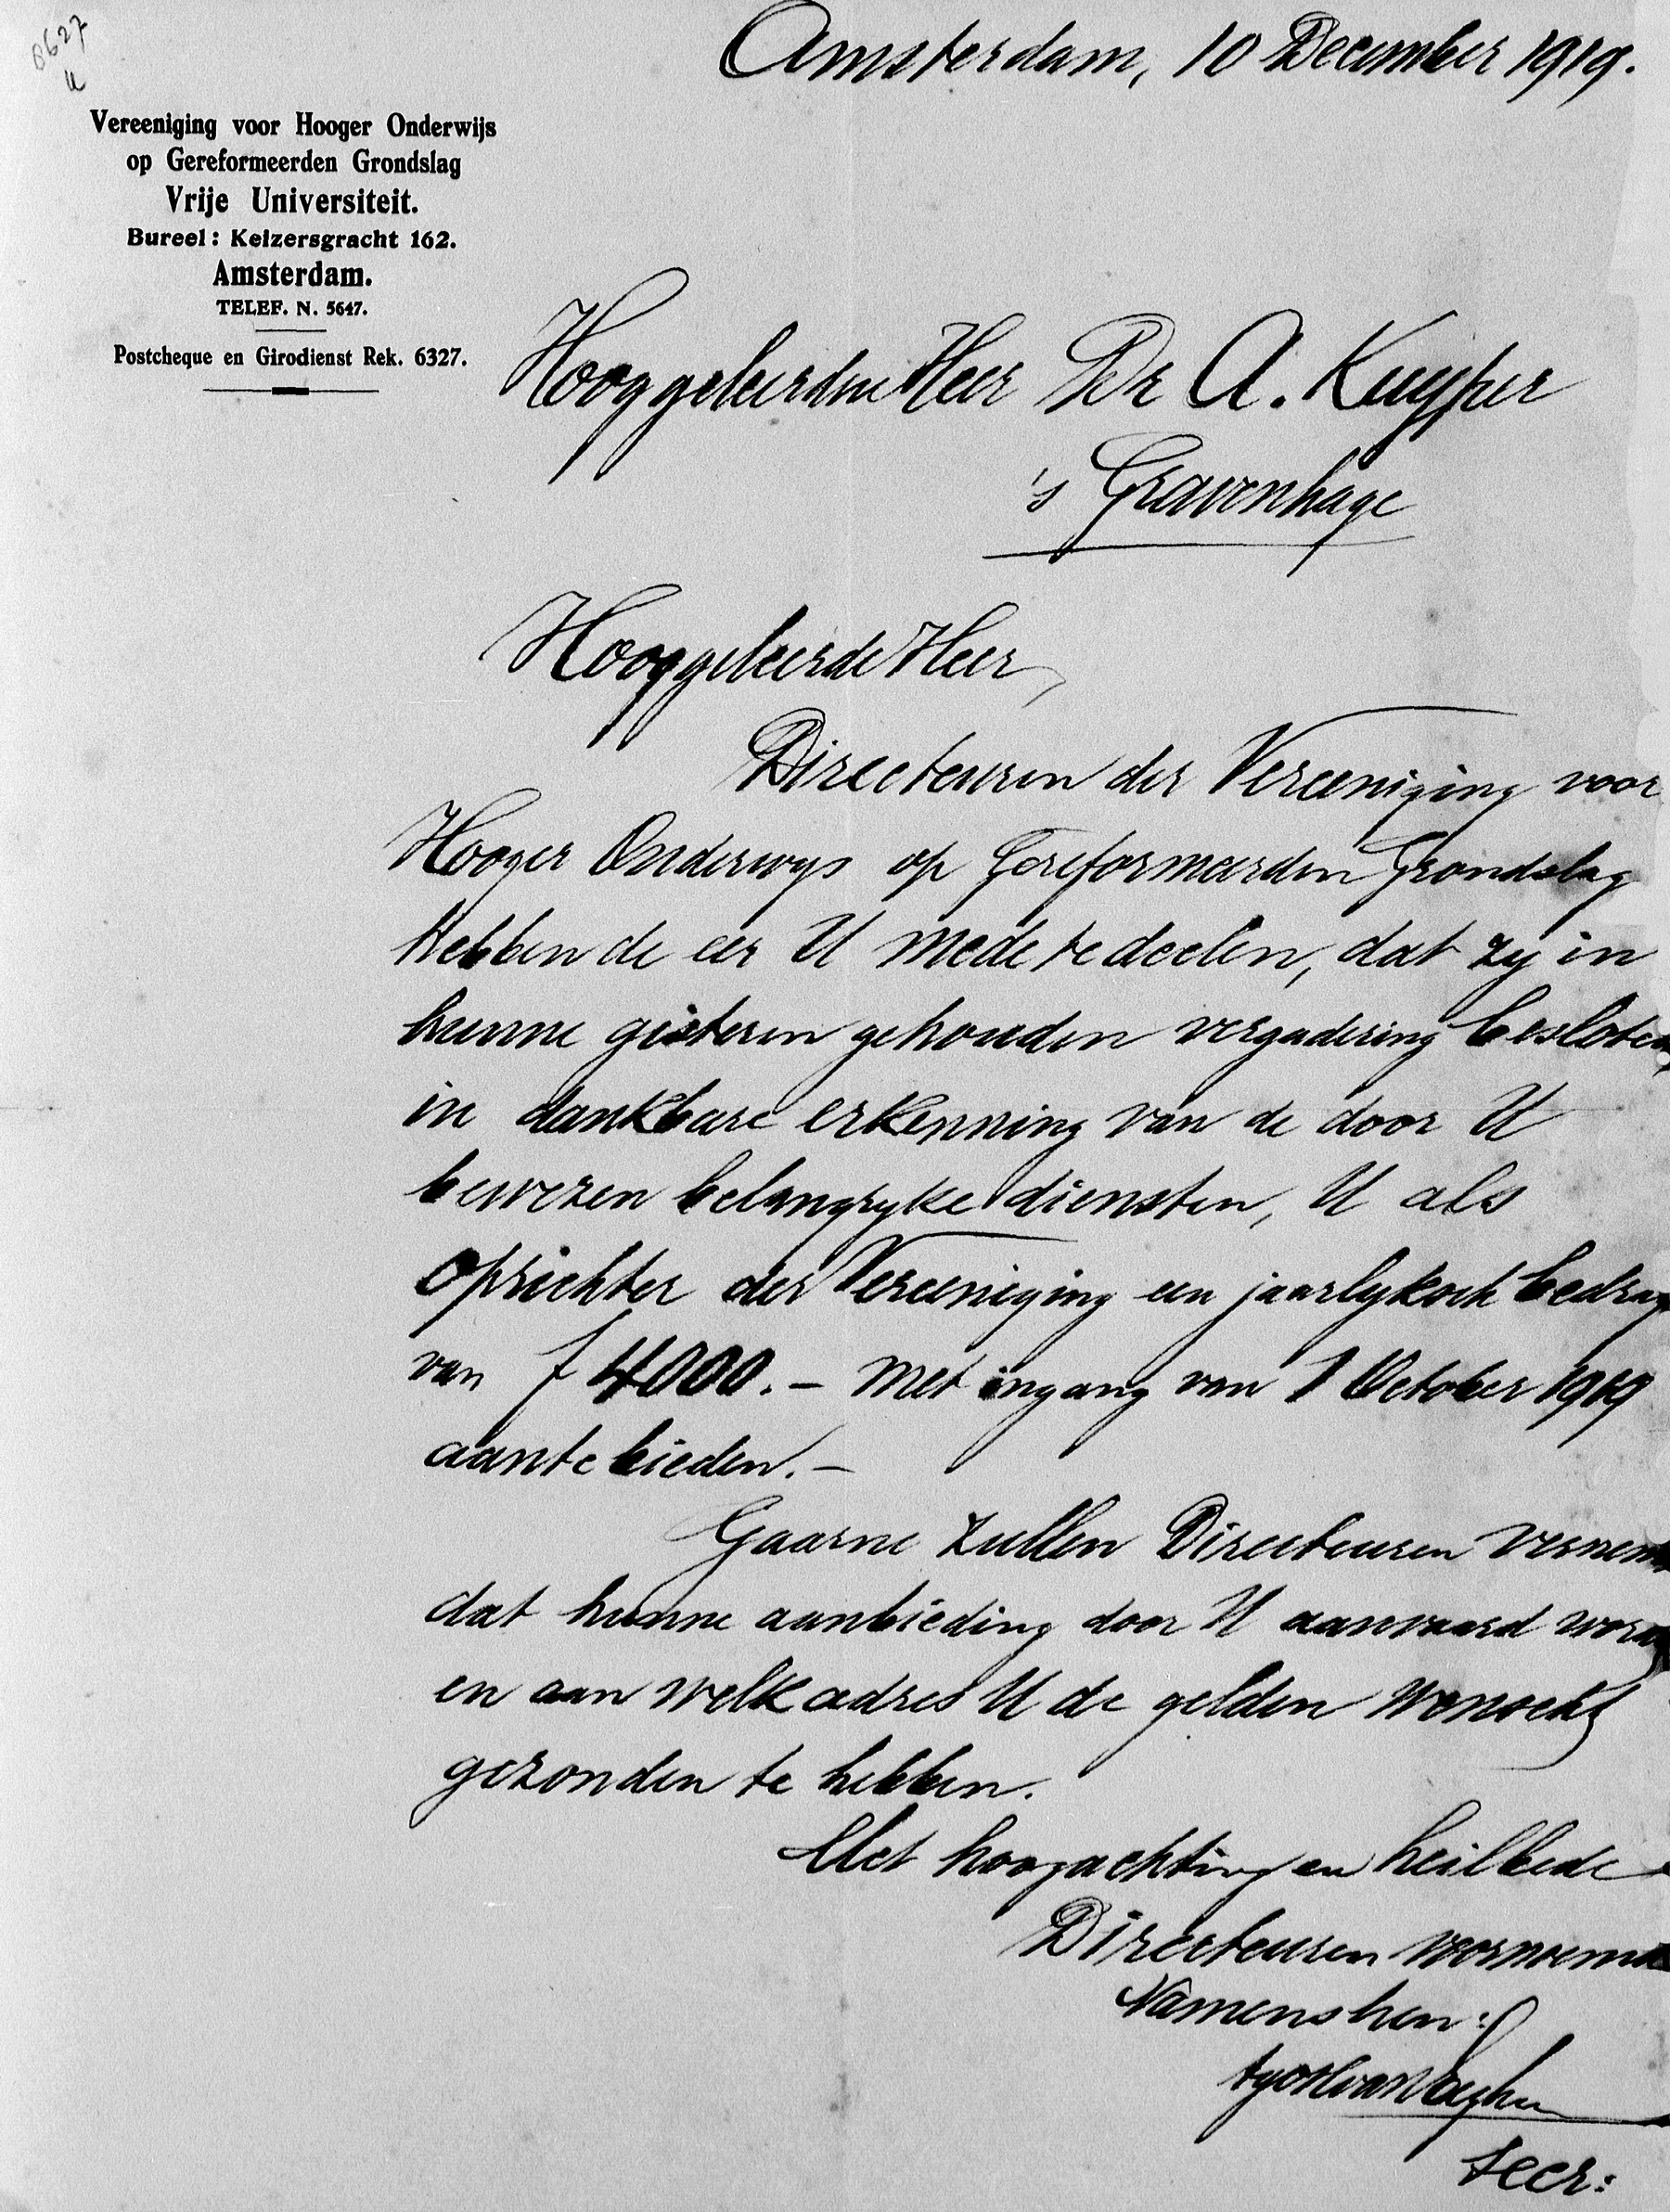 8627
Amsterdam, 10 December 1919.
Vereeniging voor Hooger Onderwijs
op Gereformeerden Grondslag
Vrije Universiteit.
Bureel: Keizersgracht 162.
Amsterdam.
TELEF. N. 5647.
Postcheque en Girodienst Rek. 6327.
Hooggeleerden Heer Dr A. Kuyper
's Gravenhage
Hooggeleerde Heer,
Directeuren der Vereeniging voor
Hooger Onderwys op Gereformeerden Grondslag
hebben de eer U mede te deelen, dat zy in
hunne gisteren gehouden vergadering besloten,
in dankbare erkenning van de door U
bewezen belangryke diensten, U als
oprichter der Vereeniging een jaarlyksch bedrag
van f 4000.- met ingang van 1 October 1919
aan te bieden.-
Gaarne zullen Directeuren vernem
dat hunne aanbieding door U aanvaard word
en aan welk adres U de gelden wenscht
gezonden te hebben.
Met hoogachting en heilbede
Directeuren voornoemd
Namens hen:
secr: